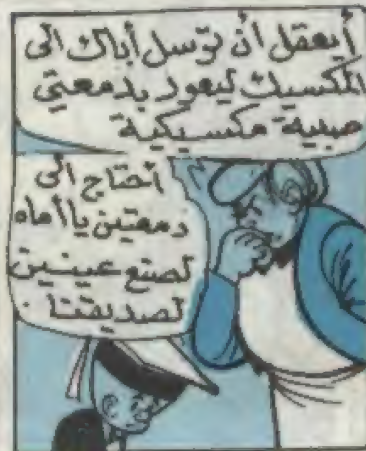 أيعقل أن ترسل أباك الى
المكسيك ليعود بدمعتي
صبية مكسيكية
أحتاج الى
دمعتين يا أماه
لصنع عينين
لصديقتنا .